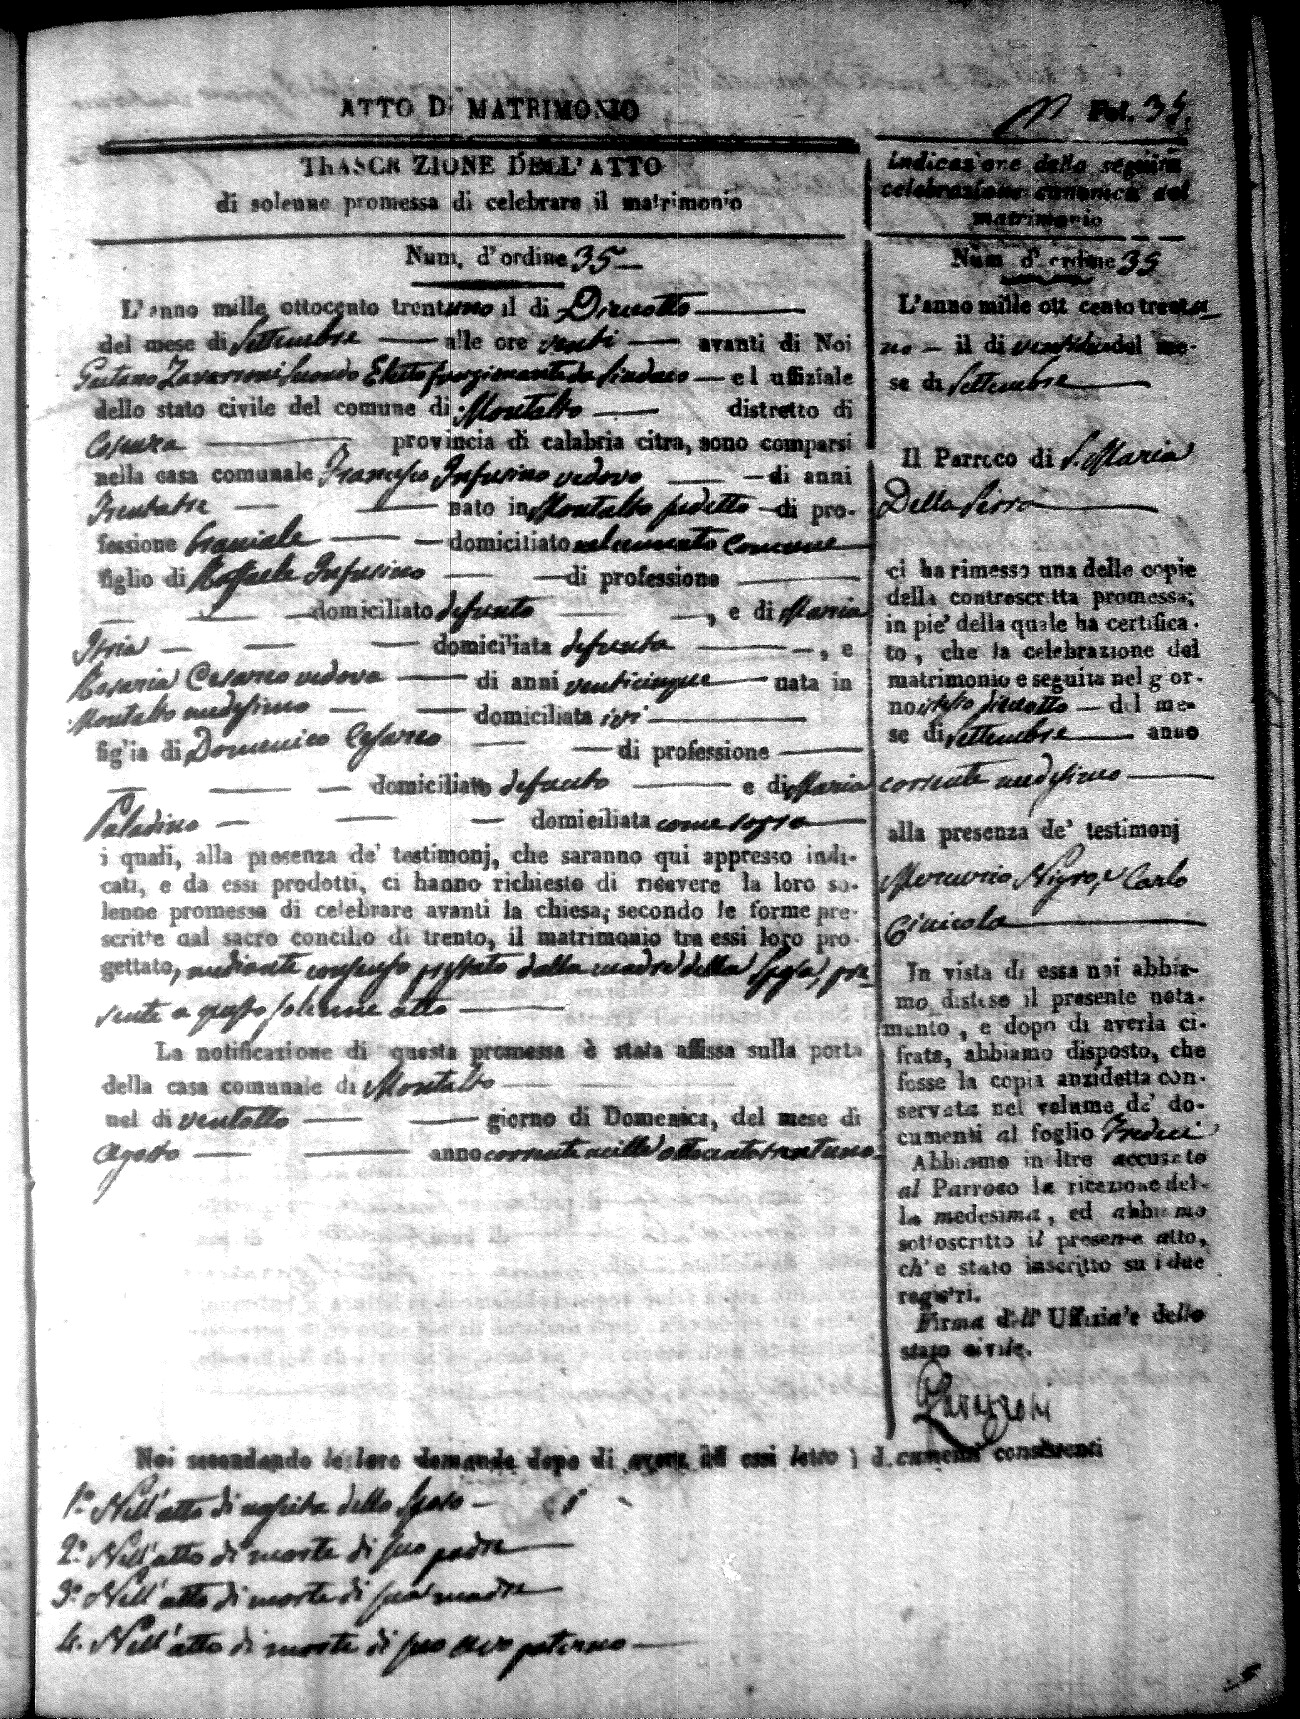 ATTO DI MATRIMONIO
Fol. 35.
TRASCRIZIONE DELL'ATTO
di solenne promessa di celebrare il matrimonio
Num. d'ordine 35
L'anno mille ottocento trentuno il di Dieciotto
del mese di Settembre alle ore venti avanti di Noi
Gaetano Zavarroni Secondo Eletto funzionante da Sindaco e l uffiziale
dello stato civile del comune di Montalto distretto di
Cosenza provincia di calabria citra, sono comparsi
nella casa comunale Francesco Infusino vedovo di anni
Trentatre nato in Montalto predetto di pro-
fessione domiciliato nel Comune
figlio di Raffaele Infusino di professione
domiciliato defunto , e di Maria
Itria domiciliata defunta , e
Rosaria Cesareo vedova di anni venticinque nata in
Montalto medesimo domiciliata ivi
figlia di Domenico Cesareo di professione
domiciliato defunto e di Maria
Paladino domiciliata come sopra
i quali, alla presenza de' testimonj, che saranno qui appresso indi-
cati, e da essi prodotti, ci hanno richiesto di ricevere la loro so-
lenne promessa di celebrare avanti la chiesa, secondo le forme pre-
scritte dal sacro concilio di trento, il matrimonio tra essi loro pro-
gettato, mediante consenso prestato dalla madre della Sposa, pre-
sente a questo solenne atto
La notificazione di questa promessa è stata affissa sulla porta
della casa comunale di Montalto
nel di ventotto giorno di Domenica, del mese di
Agosto anno corrente mille ottocento trentuno
Indicazione della seguita
celebrazione canonica del
matrimonio
Num d'ordine 35
L'anno mille ottocento trentu-
no il di del me-
se di Settembre
Il Parroco di S. Maria
Della Serra
ci ha rimesso una delle copie
della controscritta promessa;
in pie' della quale ha certifica-
to, che la celebrazione del
matrimonio e seguita nel gior-
no dieciotto del me-
se di Settembre anno
corrente medesimo
alla presenza de' testimonj
Mercurio Nigro, e Carlo
In vista di essa noi abbia-
mo disteso il presente nota-
mento, e dopo di averla ci-
frata, abbiamo disposto, che
fosse la copia anzidetta con-
servata nel volume de' do-
cumenti al foglio Tredeci
Abbiamo inoltre accusato
al Parroco la ricezione del-
la medesima, ed abbiamo
sottoscritto il presente atto,
ch'e stato inscritto su i due
registri.
Firma dell' Uffiziale dello
stato civile.
Zavarroni
Noi secondando le loro domande dopo di avere ad essi letto i documenti consistenti
1.º Nell'atto di nascita dello Sposo
2.º Nell'atto di morte di suo padre
3.º Nell'atto di morte di sua madre
4. Nell'atto di morte di suo avo paterno